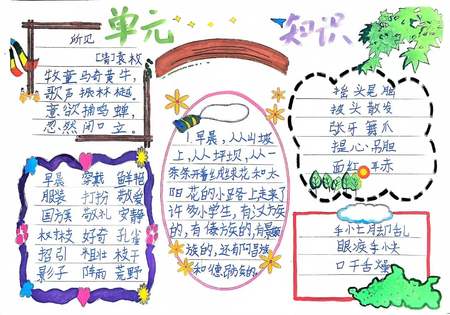 单元 知识
所见
袁枚
牧童骑黄牛,
歌声振林樾。
意欲捕鸣蝉,
忽然闭口立。
早晨 穿戴 鲜艳
服装 打扮 敬爱
国旗 敬礼 安静
树枝 好奇 孔雀
招引 粗壮 枝干
影子 阵雨 荒野
1.早晨,从山坡
上,从坪坝,从一
条条开着绒球花和太
阳花的小路上走来了
许多小学生,有汉族
的,有傣族的,有景颇
族的,还有阿昌族
和德昂族的。
摇头晃脑
披头散发
张牙舞爪
提心吊胆
面红耳赤
手忙脚乱
眼疾手快
口干舌燥